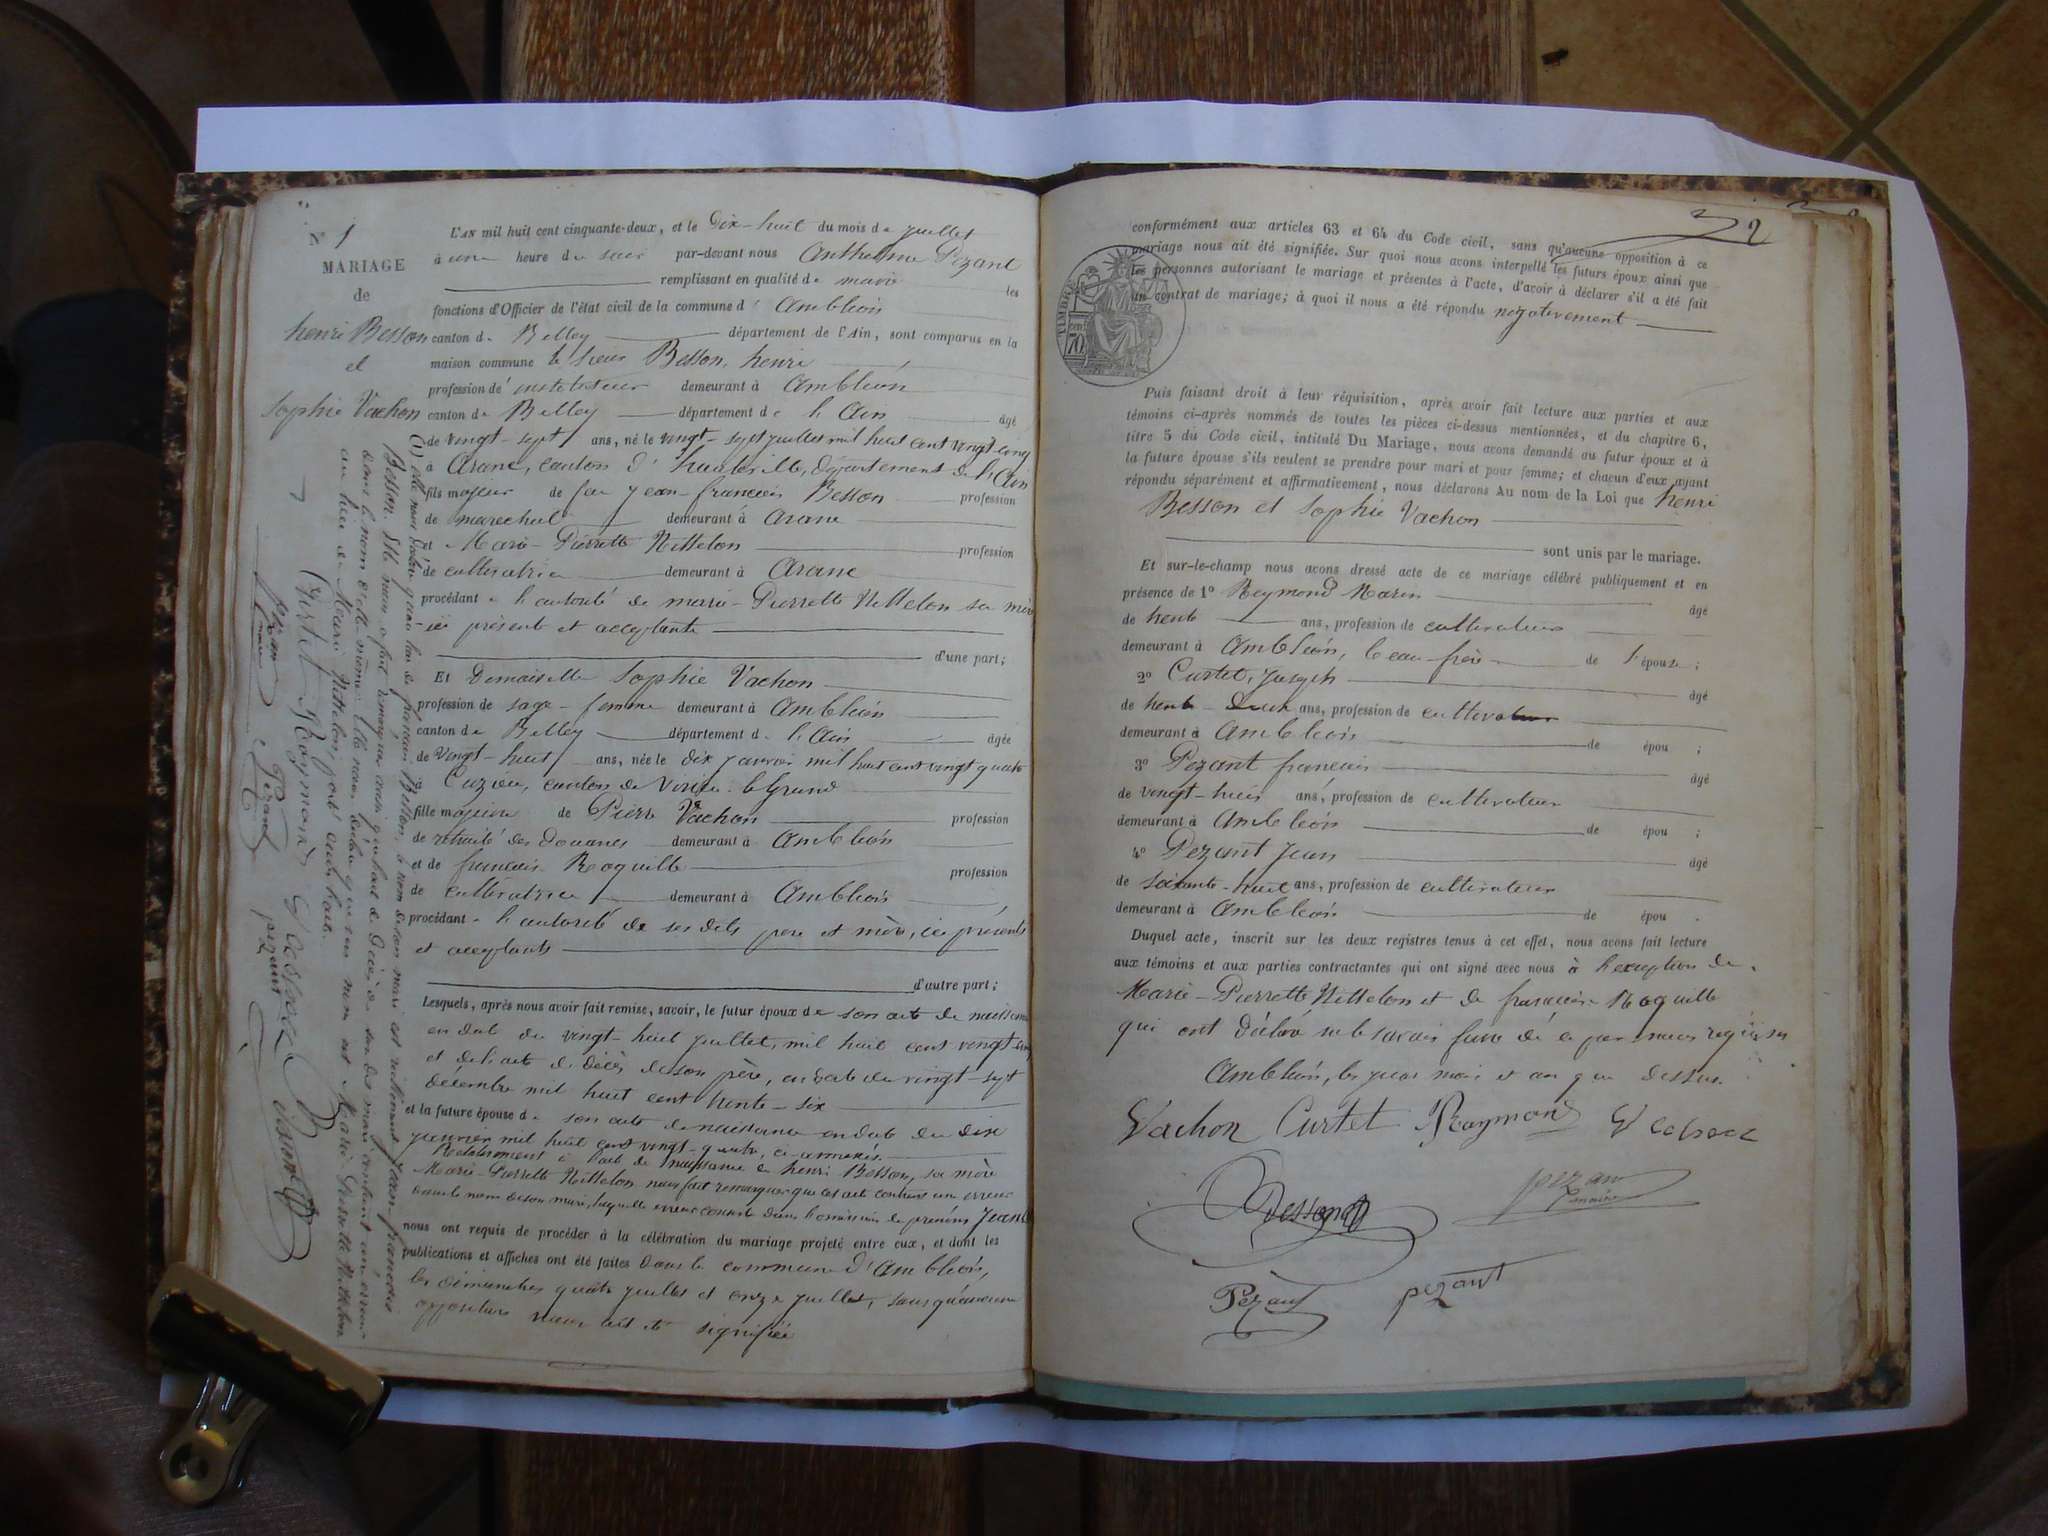 1
MARIAGE
de
henri Besson
et
Sophie Vachon
L'AN mil huit cent cinquante-deux, et le Dix-huit du mois de juillet
à une heure du soir par-devant nous Anthelme Pezant
remplissant en qualité de maire les
fonctions d'Officier de l'état civil de la commune d' Ambléon
canton de Belley département de l'Ain, sont comparus en la
maison commune le sieur Besson, henri
profession d'instituteur demeurant à Ambléon
canton de Belley département de l'Ain âgé
de vingt-sept ans, né le vingt-sept juillet mil huit cent vingt-cinq
à Arane, canton d'hauteville, département de l'Ain
fils majeur de feu jean-francois Besson profession
de marechal demeurant à Arane
et Marie-Pierrette Nittelon profession
de cultivatrice demeurant à Arane
procédant l'autorité de marie-Pierrette Nittelon sa mère
ici présente et acceptante
d'une part;
Et Demoiselle Sophie Vachon
profession de sage-femme demeurant à Ambléon
canton de Belley département de l'Ain âgée
de vingt-huit ans, née le dix janvier mil huit cent vingt quatre
à Cuzieu, canton de Virieu-le-Grand
fille majeure de Pierre Vachon profession
de retraité des Douanes demeurant à Ambléon
et de Roquille profession
de cultivatrice demeurant à Ambléon
procédant l'autorité de ses dits père et mère, ici présents
et acceptants
d'autre part;
Lesquels, après nous avoir fait remise, savoir, le futur époux de son acte de naissance
en date du vingt-huit juillet, mil huit cent vingt-cinq
et de l'acte de décès de son père, en date du vingt-sept
décembre mil huit cent trente-six
et la future épouse de son acte de naissance en date du dix
janvier mil huit cent vingt-quatre, ci-annexés.
Relativement à l'acte de naissance de henri Besson, sa mère
Marie-Pierrette Nittelon nous fait remarquer que cet acte contient une erreur
dans le nom de son mari, laquelle erreur consiste dans l'omission du prénom Jean
nous ont requis de procéder à la célébration du mariage projeté entre eux, et dont les
publications et affiches ont été faites dans la commune d'Ambléon,
les dimanches quatre juillet et onze juillet, sans qu'aucune
opposition nous ait été signifiée
(1) elle nous déclare qu'au lieu de francois Besson, le nom de son mari est réellement jean-francois
Besson. Elle nous a fait remarquer aussi que l'acte de Décès de son dit mari contient une erreur
dans le nom d'elle-même. Elle nous déclare que son nom est Marie Pierrette Nittelon
au lieu de Marie Nittelon, porté audit acte.
Curtet Raymond
pezant
maire
Pezant
pezant
2
conformément aux articles 63 et 64 du Code civil, sans qu'aucune opposition à ce
mariage nous ait été signifiée. Sur quoi nous avons interpellé les futurs époux ainsi que
les personnes autorisant le mariage et présentes à l'acte, d'avoir à déclarer s'il a été fait
un contrat de mariage; à quoi il nous a été répondu negativement
TIMBRE
70
Puis faisant droit à leur réquisition, après avoir fait lecture aux parties et aux
témoins ci-après nommés de toutes les pièces ci-dessus mentionnées, et du chapitre 6,
titre 5 du Code civil, intitulé Du Mariage, nous avons demandé au futur époux et à
la future épouse s'ils veulent se prendre pour mari et pour femme; et chacun d'eux ayant
répondu séparément et affirmativement, nous déclarons Au nom de la Loi que henri
Besson et Sophie Vachon
sont unis par le mariage.
Et sur-le-champ nous avons dressé acte de ce mariage célébré publiquement et en
présence de 1° Reymond Marin âgé
de trente ans, profession de cultivateur
demeurant à Ambléon, beau-frère de l'épouse;
2° Curtet, Joseph âgé
de trente-deux ans, profession de cultivateur
demeurant à Ambléon de épou ;
3° Pezant francois âgé
de vingt-huit ans, profession de cultivateur
demeurant à Ambléon de épou ;
4° Pezant Jean âgé
de soixante-huit ans, profession de cultivateur
demeurant à Ambléon de épou .
Duquel acte, inscrit sur les deux registres tenus à cet effet, nous avons fait lecture
aux témoins et aux parties contractantes qui ont signé avec nous à l'exception de
Marie-Pierrette Nittelon et de françoise Roquille
qui ont déclaré ne le savoir faire de ce par nous requises
Ambléon, les jour mois et an que dessus.
Vachon Curtet Raymond
Bessonet
pezant
maire
Pezant
pezant